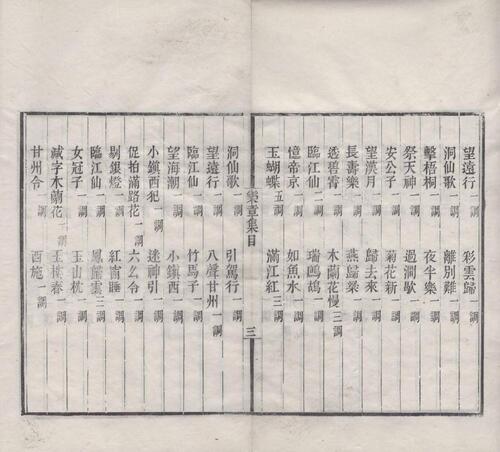 望遠行一調 彩雲歸一調
洞仙歌一調 離別難一調
擊梧桐一調 夜半樂一調
祭天神一調 過澗歇一調
安公子一調 菊花新一調
望漢月一調 歸去來一調
長壽樂一調 燕歸梁一調
透碧霄一調 木蘭花慢三調
臨江仙二調 瑞鷓鴣一調
憶帝京一調 如魚水一調
玉蝴蝶五調 滿江紅三調
樂章集目 三
洞仙歌一調 引駕行一調
望遠行一調 八聲甘州一調
臨江仙一調 竹馬子一調
望海潮一調 小鎮西一調
小鎮西犯一調 迷神引一調
促拍滿路花一調 六么令一調
剔銀燈一調 紅窗睡一調
臨江仙一調 鳳歸雲三調
女冠子一調 玉山枕一調
減字木蘭花一調 玉樓春一調
甘州令一調 西施一調